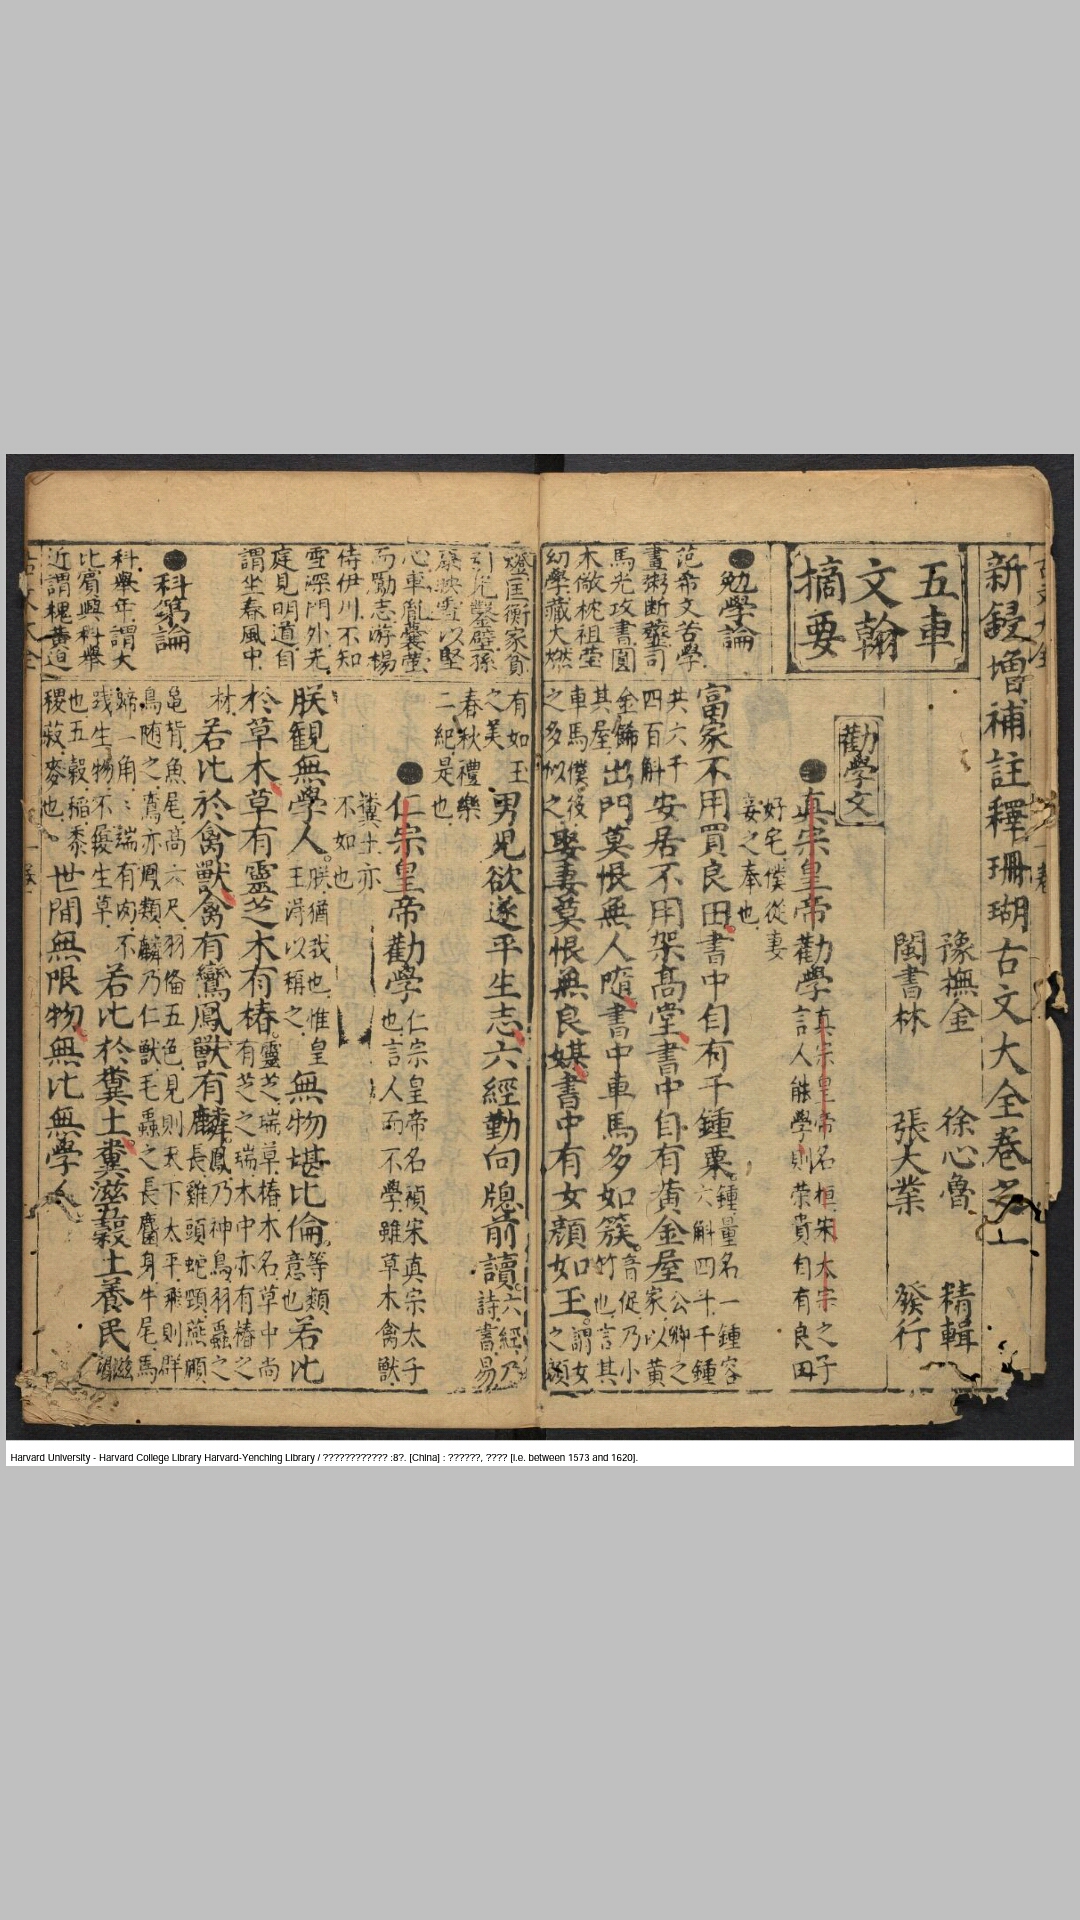 新鋟增補註釋珊瑚古文大全卷之一
豫撫金 徐心魯 精輯
閩書林 張大業 發行
五車
文翰
摘要
勉學論
范希文苦學
畫粥斷虀司
馬光攻書圓
木做枕祖瑩
幼學藏火燃
勸學文
真宗皇帝勸學
真宗皇帝名桓宋太宗之子
言人能學則榮貴自有良田
好宅僕從妻
妾之奉也
富家不用買良田書中自有千鍾粟
鍾量名一鍾容
六斛四斗千鍾
共六千
四百斛
安居不用架高堂書中自有黃金屋
公卿之
家以黃
金飾
其屋
出門莫恨無人隨書中車馬多如簇
音促乃小
竹也言其
車馬僕後
之多似之
娶妻莫恨無良媒書中有女顏如玉
謂女
之顏
燈匡衡家貧
引光鑿壁孫
康映雪以堅
心車胤囊螢
而勵志游楊
侍伊川不知
雪深門外光
庭見明道自
謂坐春風中
科第論
科舉年謂大
比賓興科舉
近謂槐黃迫
有如玉
之美
男兒欲遂平生志六經勤向牕前讀
六經乃
詩書易
春秋禮樂
二紀是也
仁宗皇帝勸學
仁宗皇帝名禎宋真宗太子
也言人而不學雖草木禽獸
糞土亦
不如也
朕觀無學人
朕猶我也惟皇
王得以稱之
無物堪比倫
等類
意也
若比
於草木草有靈芝木有椿
靈芝瑞草椿木名草中尚
有芝之瑞木中亦有椿之
材
若比於禽獸禽有鸞鳳獸有麟
鳳乃神鳥羽蟲之
長雞頭蛇頸燕頷
龜背魚尾高六尺羽備五色見則天下太平飛則群
鳥隨之鸞亦鳳類麟乃仁獸毛蟲之長麕身牛尾馬
蹄一角角端有肉不
踐生物不履生草
若比於糞土糞滋五穀土養民
滋
也五穀稻黍
稷菽麥也
世間無限物無比無學人
Harvard University - Harvard College Library Harvard-Yenching Library / ???????????? :8?. [China] : ??????, ???? [i.e. between 1573 and 1620].